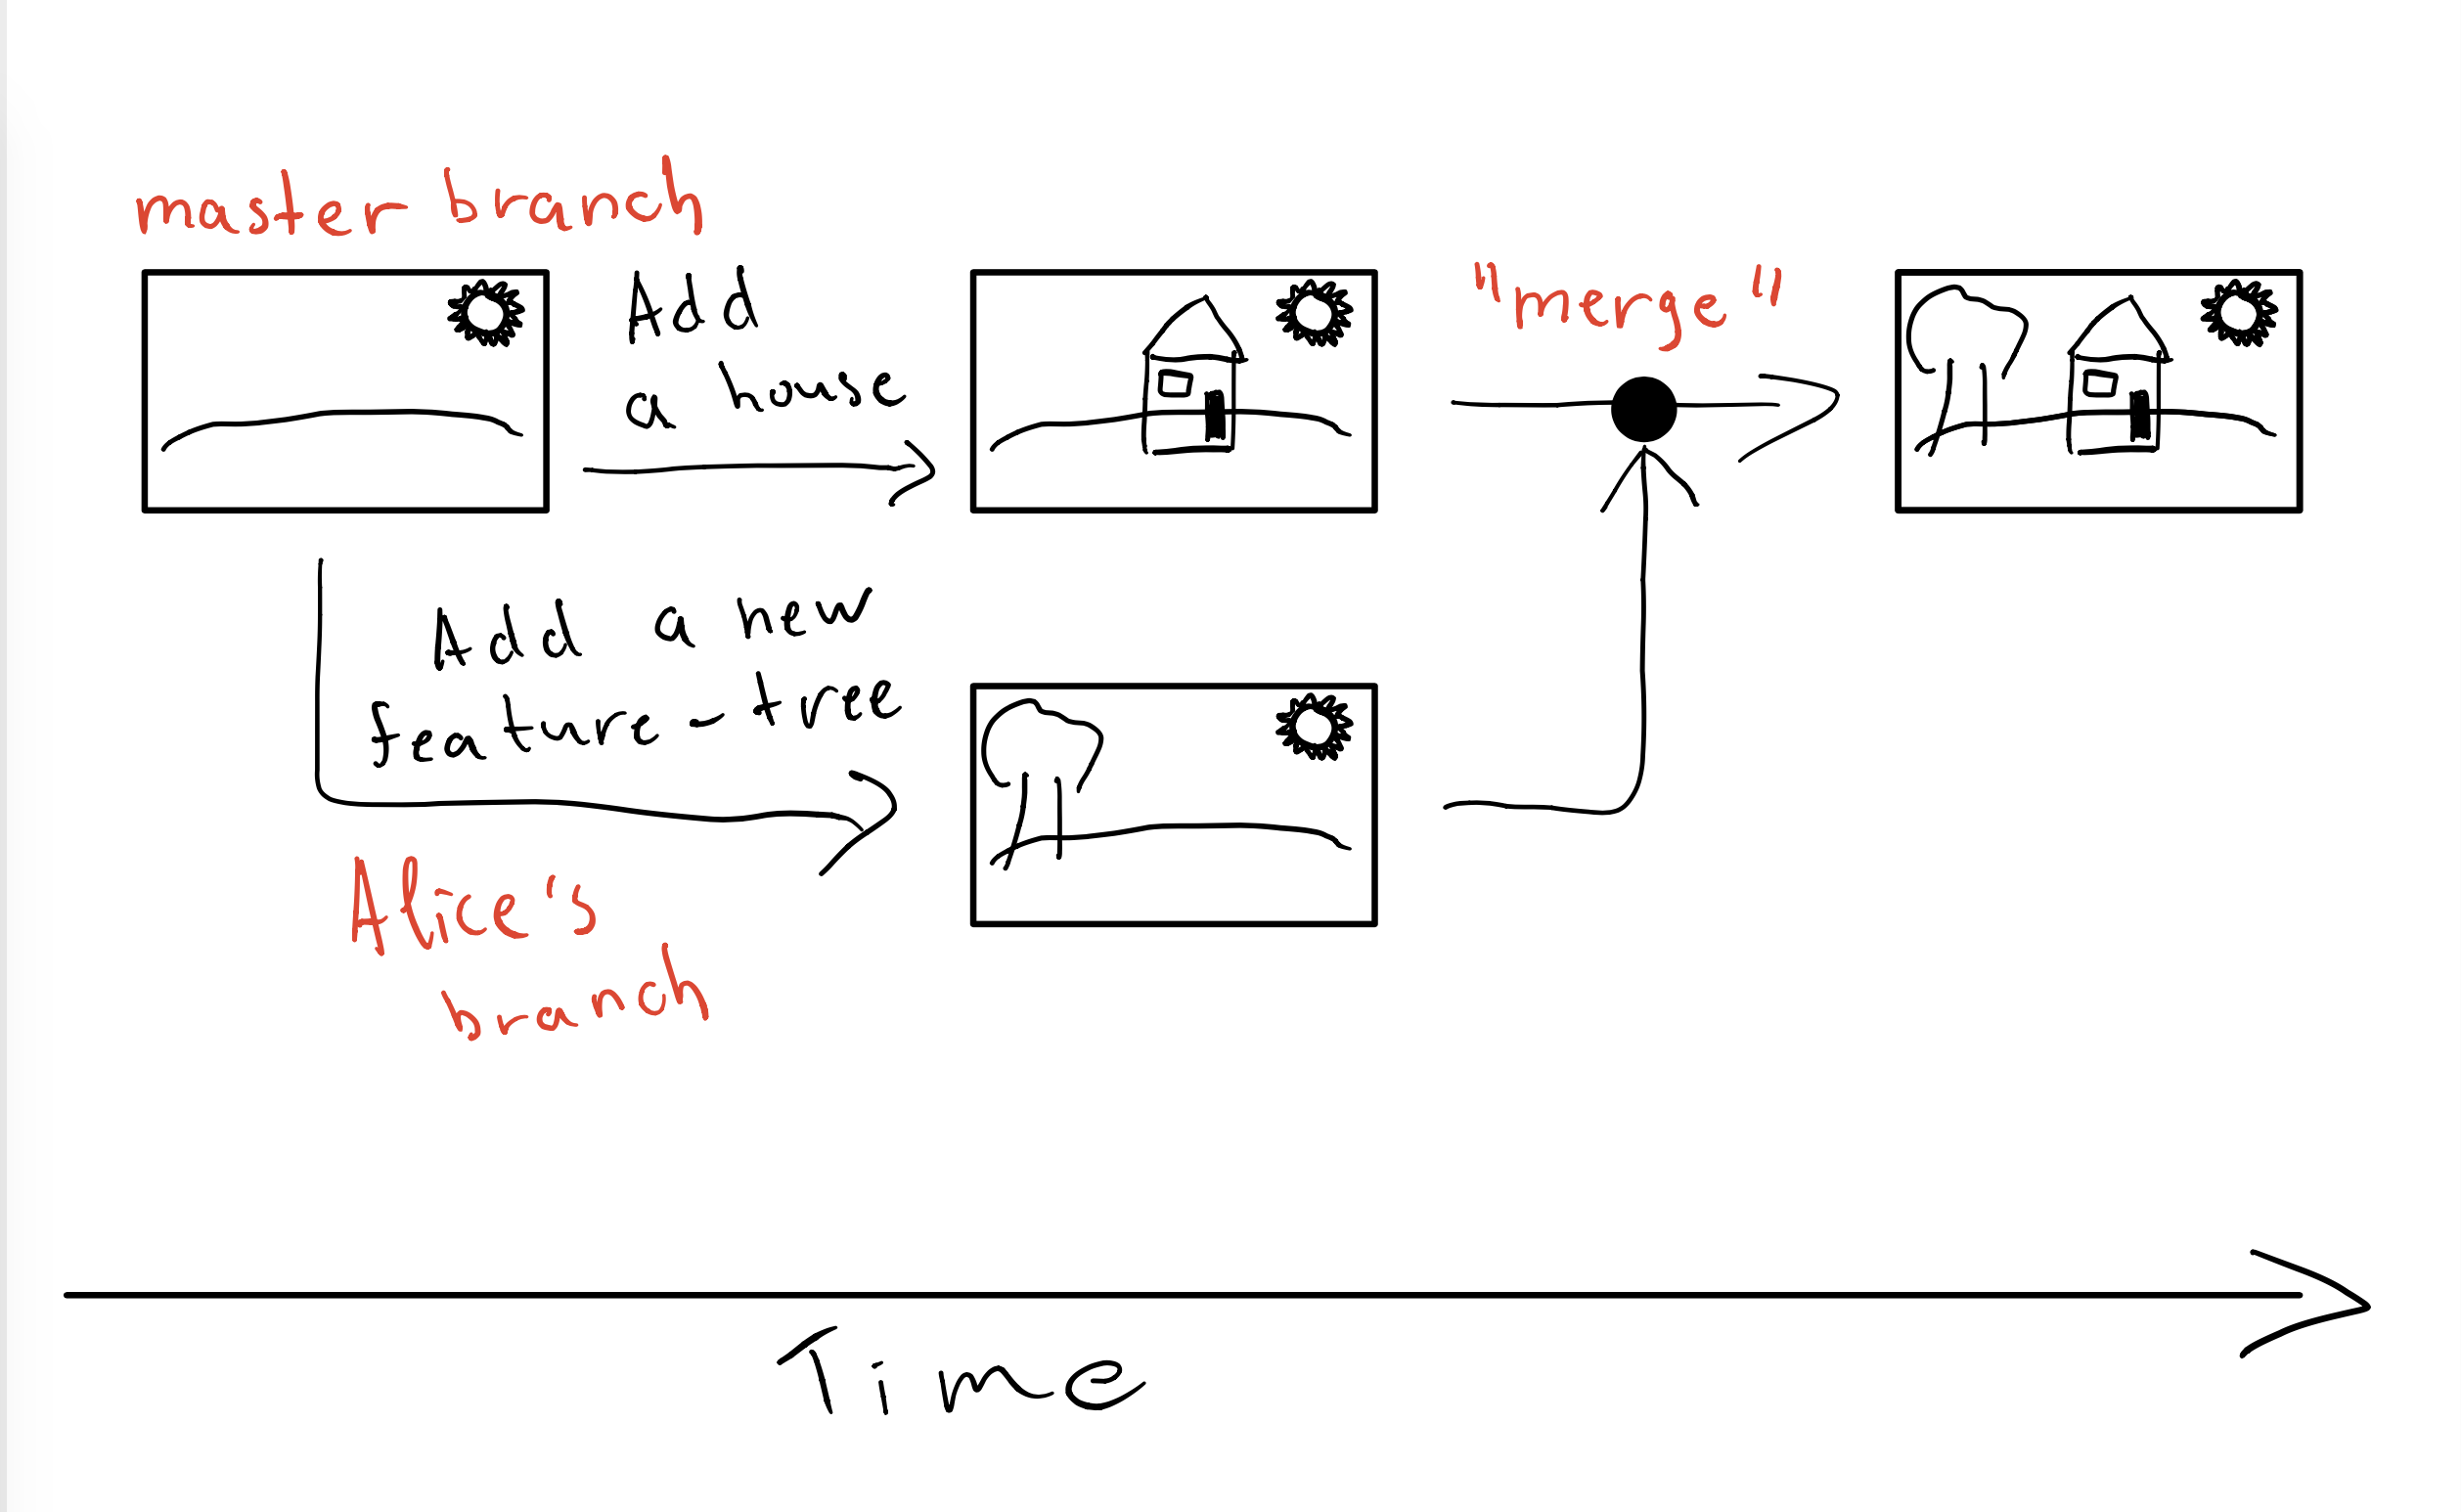 master branch
Add
a house
"merge"
Add a new
feature - tree
Alice's
branch
Time